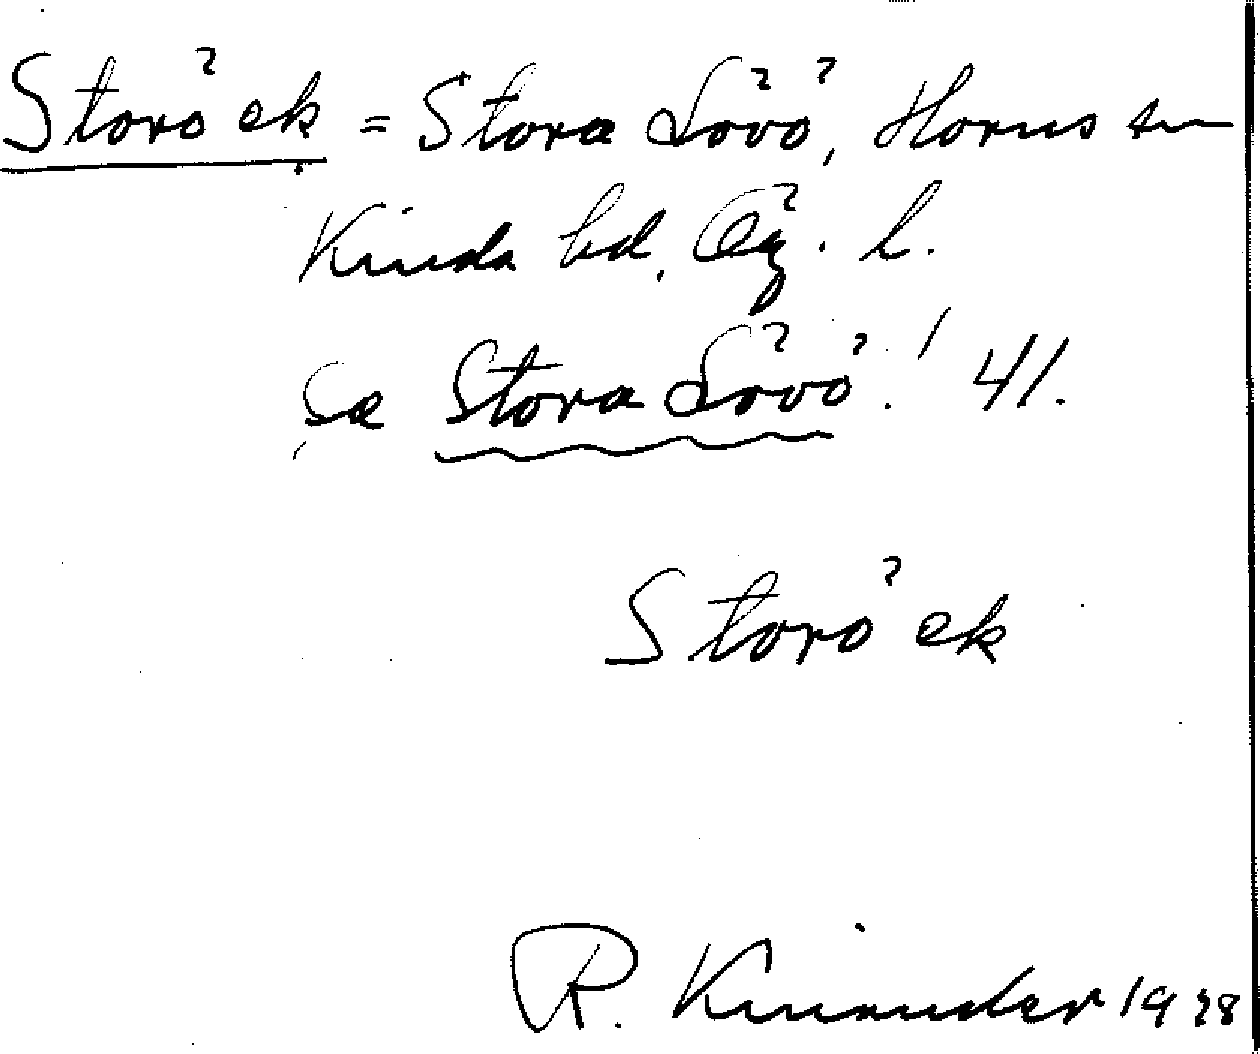 Storö ek = Stora Lövö, Horns sn
Kinda hd, Ög. l.
Se Stora Lövö! 41.
Storö ek
R. Kinander 1928